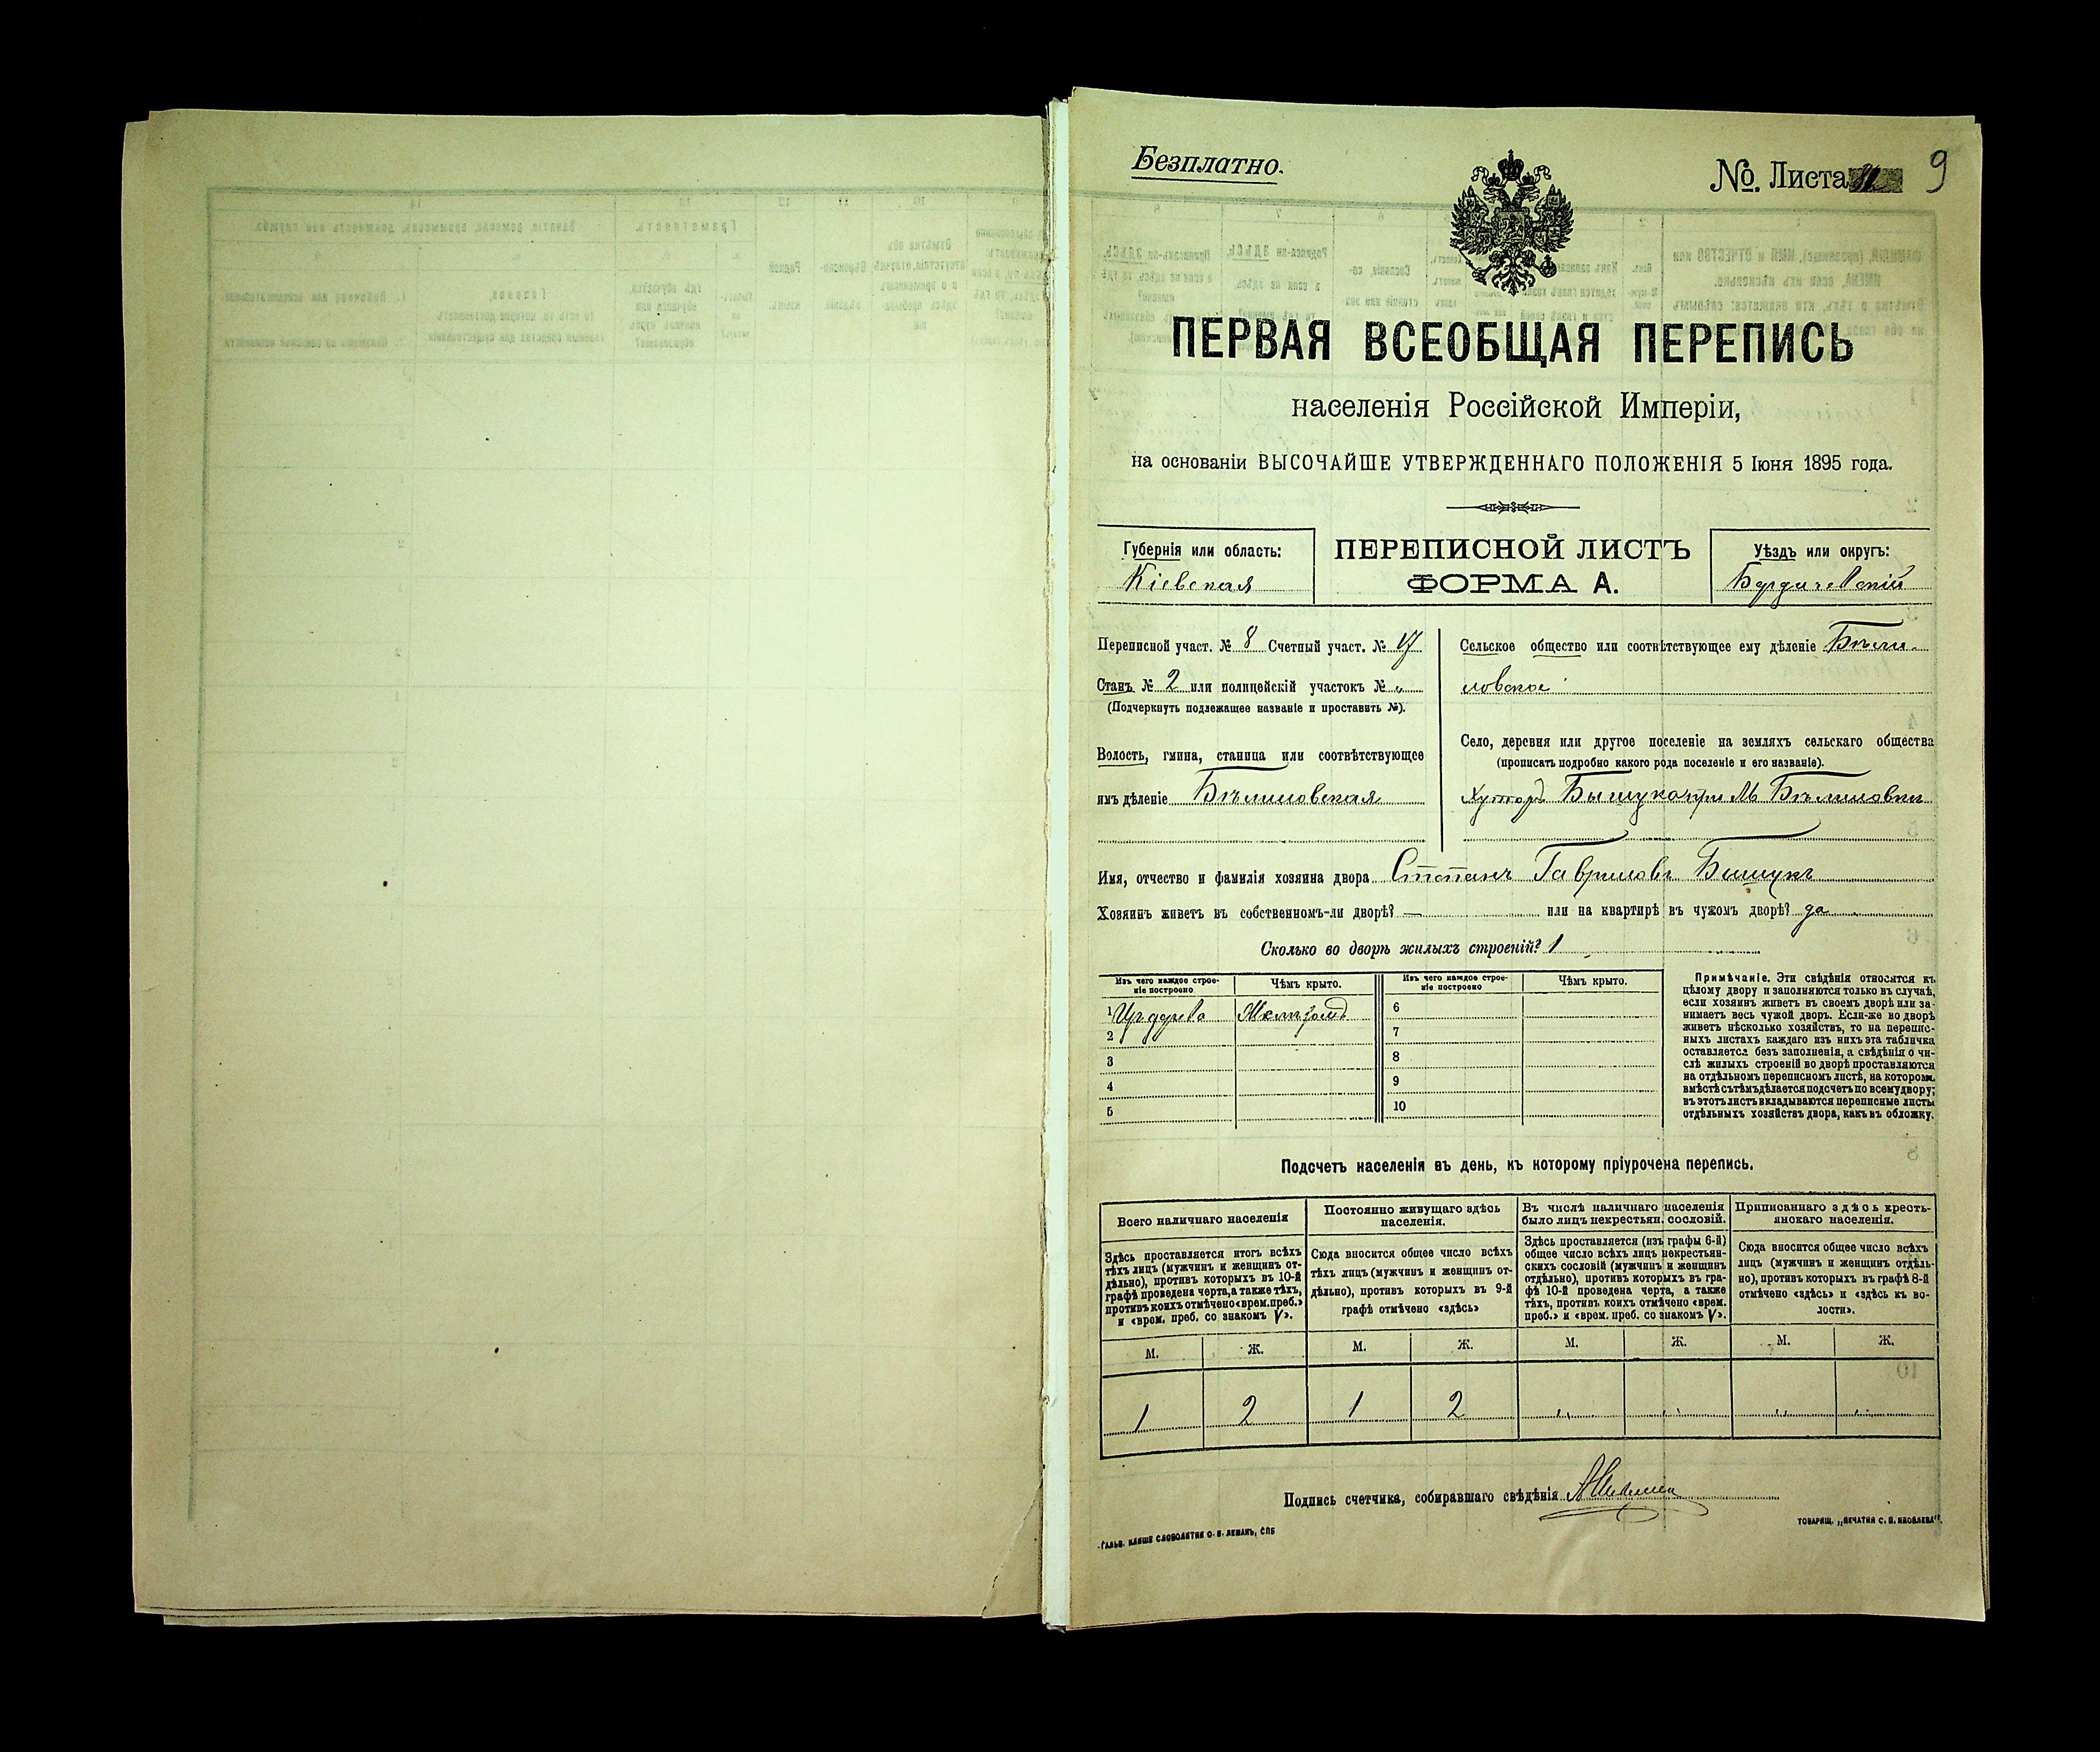 Безплатно.
№. Листа 9
ПЕРВАЯ ВСЕОБЩАЯ ПЕРЕПИСЬ
населенія Россійской Имперіи,
на основаніи ВЫСОЧАЙШЕ УТВЕРЖДЕННАГО ПОЛОЖЕНІЯ 5 Іюня 1895 года.
Губернія или область:
Кіевская
ПЕРЕПИСНОЙ ЛИСТЪ
ФОРМА А.
Уѣздъ или округъ:
Бердичевскій
Переписной участ. № 8 Счетный участ. № 17
Станъ № 2 или полицейскій участокъ № „
(Подчеркнуть подлежащее названіе и проставить №).
Волость, гмина, станица или соотвѣтствующее
имъ дѣленіе Бѣлиловская
Сельское общество или соотвѣтствующее ему дѣленіе Бѣли-
ловское
Село, деревня или другое поселеніе на земляхъ сельскаго общества
(прописать подробно какого рода поселеніе и его названіе).
Хуторъ при М. Бѣлиловки
Имя, отчество и фамилія хозяина двора Степанъ Гавриловъ
Хозяинъ живетъ въ собственномъ-ли дворѣ? — или на квартирѣ въ чужомъ дворѣ? да
Сколько во дворѣ жилыхъ строеній? 1
Изъ чего каждое строе-
ніе построено
Чѣмъ крыто.
Изъ чего каждое строе-
ніе построено
Чѣмъ крыто.
1 Изъ дерева
2
3
4
5
6
7
8
9
10
Примѣчаніе. Эти свѣдѣнія относятся къ
цѣлому двору и заполняются только въ случаѣ,
если хозяинъ живетъ въ своемъ дворѣ или за-
нимаетъ весь чужой дворъ. Если-же во дворѣ
живетъ нѣсколько хозяйствъ, то на перепис-
ныхъ листахъ каждаго изъ нихъ эта табличка
оставляется безъ заполненія, а свѣдѣнія о чи-
слѣ жилыхъ строеній во дворѣ проставляются
на отдѣльномъ переписномъ листѣ, на которомъ
вмѣстѣ съ тѣмъ дѣлается подсчетъ по всему двору;
въ этотъ листъ вкладываются переписные листы
отдѣльныхъ хозяйствъ двора, какъ въ обложку.
Подсчетъ населенія въ день, къ которому пріурочена перепись.
Всего наличнаго населенія
Здѣсь проставляется итогъ всѣхъ
тѣхъ лицъ (мужчинъ и женщинъ от-
дѣльно), противъ которыхъ въ 10-й
графѣ проведена черта, а также тѣхъ,
противъ коихъ отмѣчено «врем. преб.»
и «врем. преб. со знакомъ V».
Постоянно живущаго здѣсь
населенія.
Сюда вносится общее число всѣхъ
тѣхъ лицъ (мужчинъ и женщинъ от-
дѣльно), противъ которыхъ въ 9-й
графѣ отмѣчено «здѣсь»
Въ числѣ наличнаго населенія
было лицъ некрестьян. сословій.
Здѣсь проставляется (изъ графы 6-й)
общее число всѣхъ лицъ некрестьян-
скихъ сословій (мужчинъ и женщинъ
отдѣльно), противъ которыхъ въ гра-
фѣ 10-й проведена черта, а также
тѣхъ, противъ коихъ отмѣчено «врем.
преб.» и «врем. преб. со знакомъ V».
Приписаннаго здѣсь кресть-
янскаго населенія.
Сюда вносится общее число всѣхъ
лицъ (мужчинъ и женщинъ отдѣль-
но), противъ которыхъ въ графѣ 8-й
отмѣчено «здѣсь» и «здѣсь къ во-
лости».
М. Ж. М. Ж. М. Ж. М. Ж.
1 2 1 2 „ „ „ „
Подпись счетчика, собиравшаго свѣдѣнія
ГАЛЬВ. КЛИШЕ СЛОВОЛИТНИ О. И. ЛЕМАНЪ, СПБ
ТОВАРИЩ. „ПЕЧАТНЯ С. П. ЯКОВЛЕВА".